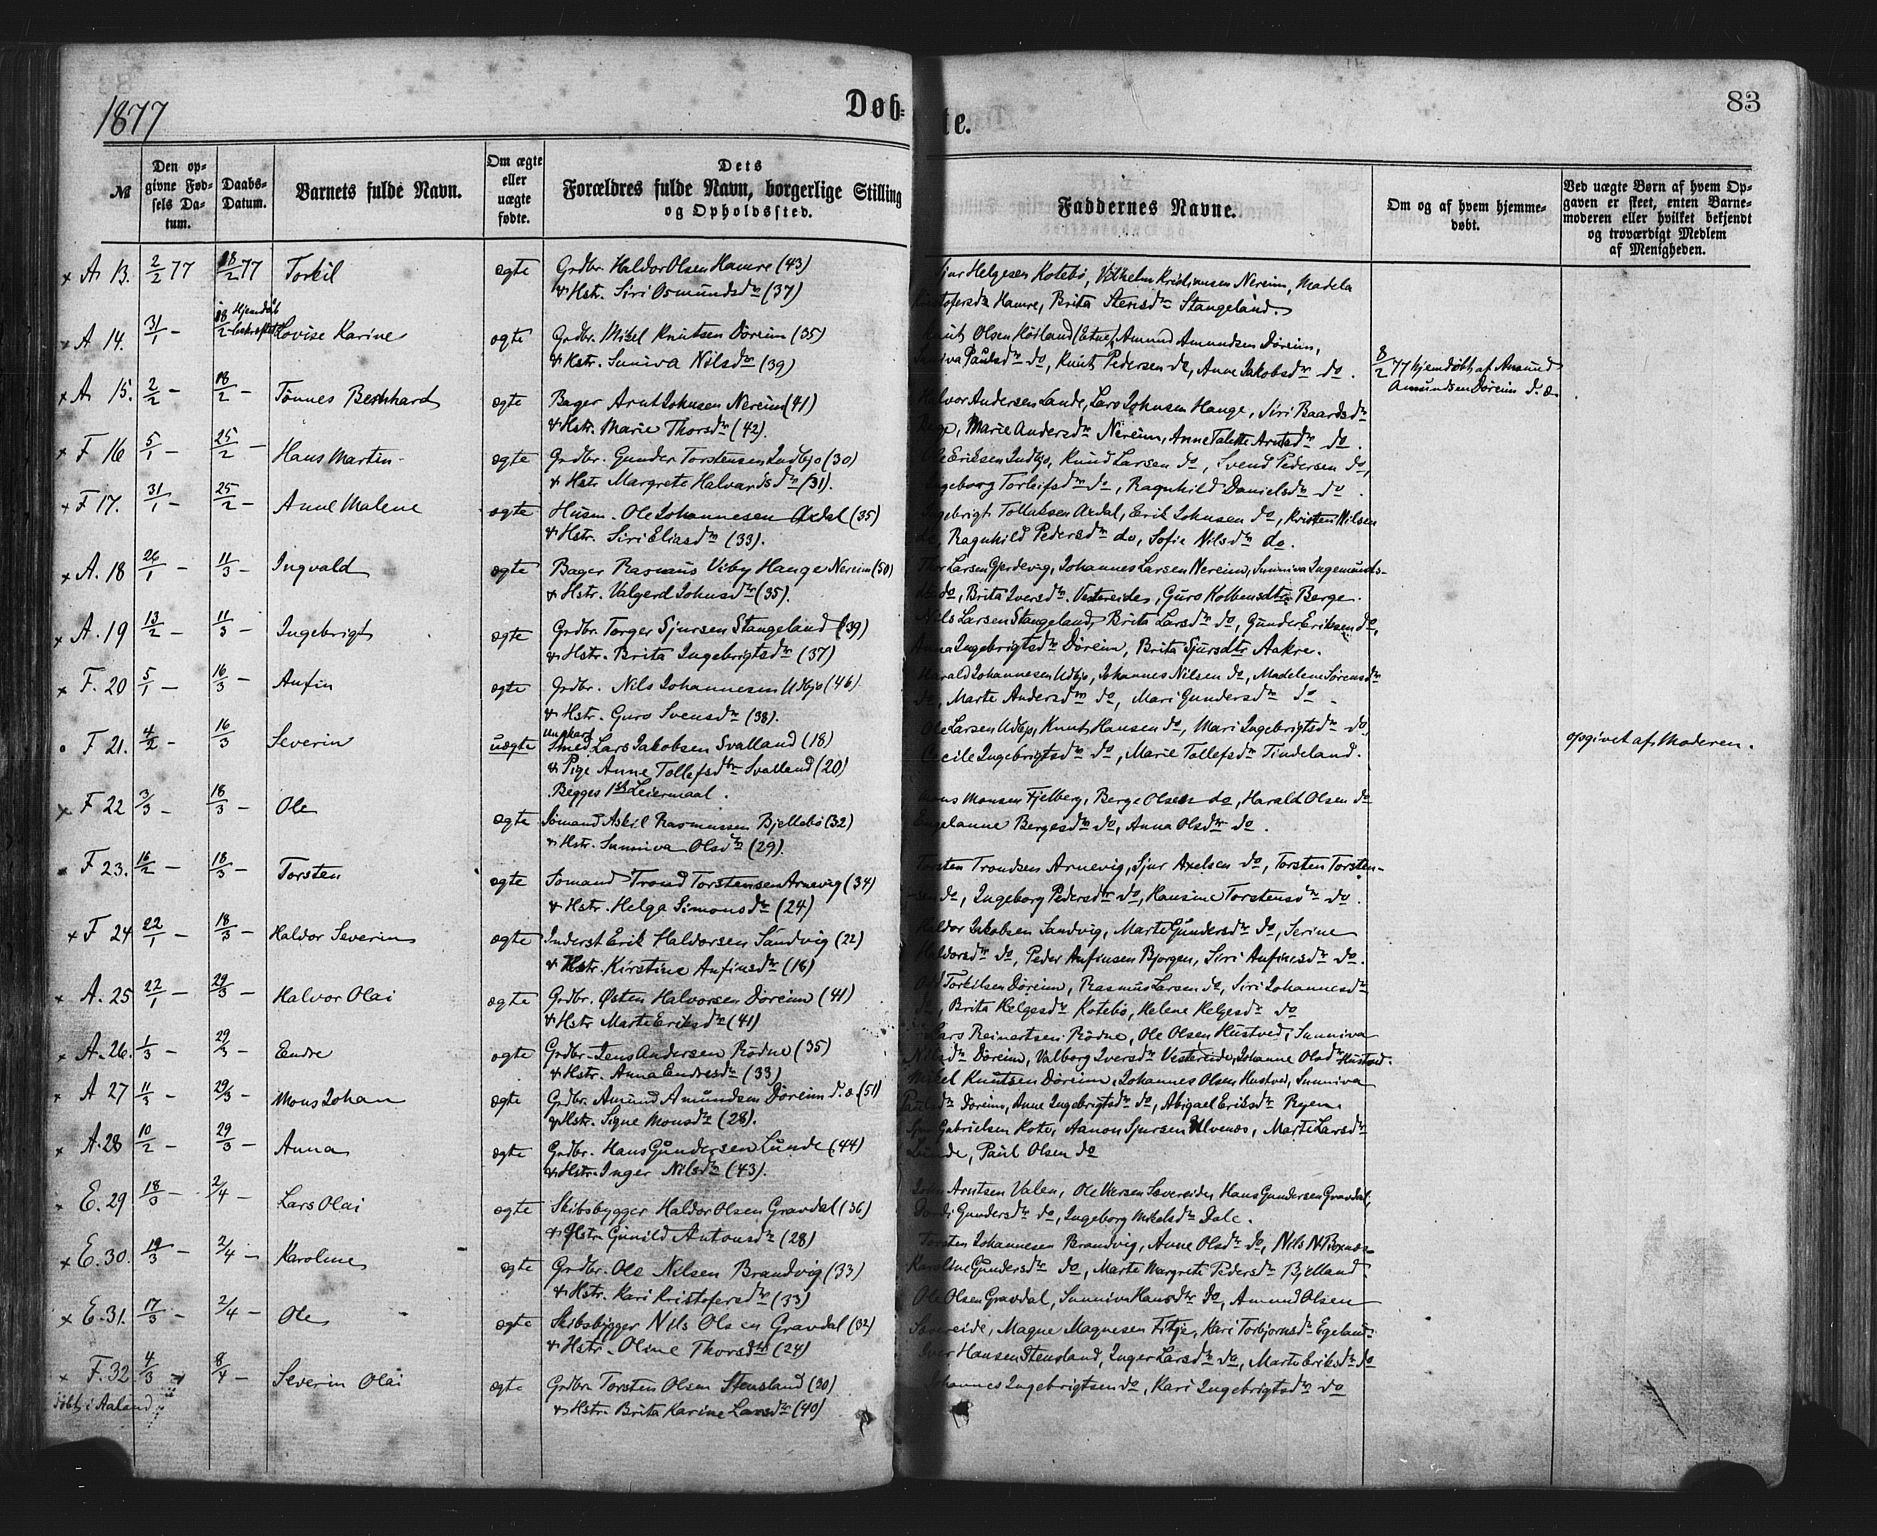 1877
Døb-
te.
83
№
Den op-
givne Fød-
sels Da-
tum.
Daabs-
Datum.
Barnets fulde Navn.
Om ægte
eller
uægte
fødte.
Dets
Forældres fulde Navn, borgerlige Stilling
og Opholdssted.
Faddernes Navne.
Om og af hvem hjemme-
døbt.
Ved uægte Børn af hvem Op-
gaven er skeet, enten Barne-
moderen eller hvilket bekjendt
og troværdigt Medlem
af Menigheden.
x A 13. 2/2 77 18/2 77 Torkil ægte Grdbr. Haldor Olsen Hamre (43)
& Hstr. Siri Osmundsdr (37)
Helgesen Kotebø, Vilhelm Kristiansen Nereim, Madela
Kristofersdr Hamre, Brita Stensdr Stangeland.
x A 14. 31/1 - 18/2 Hjemdøb bekræftet Lovise Karine ægte Grdbr. Mikel Knutsen Døreim (35)
& Hstr. Suniva Nilsdr (39)
Knut Olsen Rørland (Etne), Amund Amundsen Døreim,
Suniva Paulsdr do, Knut Pedersen do, Anne Jakobsdr do.
8/2 77 hjemdøbt af Amund
Amundsen Døreim d. æ.
x A 15. 2/2 - 18/2 - Tønnes Bernhard ægte Bager Arnt Johnsen Nereim (41)
& Hstr. Marie Thorsdr (42).
Halvor Andersen Lande, Lars Johnsen Hauge, Siri Baardsdr
Berge, Marie Andersdr Nereim, Anne Talette Arntsdr do.
x F 16 5/1 - 25/2 - Hans Martin ægte Grdbr. Gunder Torstensen Indbjo (30)
& Hstr Margrete Halvardsdr (31).
Ole Eriksen Indbjo, Knud Larsen do, Svend Pedersen do,
Ingeborg Torleifsdr do, Ragnhild Danielsdr do.
x F 17. 31/1 - 25/2 - Anne Malene ægte Husm. Ole Johannesen Axdal (35)
& Hstr. Siri Eliasdr (33).
Ingebrigt Tollaksen Axdal, Erik Johnsen do, Kristen Nilsen
do, Ragnhild Pedersdr do, Sofie Nilsdr do.
x A. 18 26/1 - 11/3 - Ingvald ægte Bager Rasmus Viby Hauge Nereim (50)
& Hstr. Valgerd Johnsdr (35).
Thor Larsen Gjerdevig, Johannes Larsen Nereim, Sunniva Ingemunds-
dr do, Brita Iversdr. Vestereides, Guro Kolbensdtr Berge.
x A. 19 13/2 - 11/3 - Ingebrigt ægte Grdbr. Torger Sjursen Stangeland (39)
& Hstr. Brita Ingebrigtsdr (37)
Nils Larsen Stangeland, Brita Larsdr do, Gunder Eriksen do,
Anna Ingebrigtsdr Døreim, Brita Sjursdtr Aakre.
x F. 20 5/1 - 16/3 - Anfin ægte Grdbr. Nils Johannesen Udbjo (46)
& Hstr. Guro Svensdr (38).
Harald Johannesen Udbjo, Johannes Nilsen do, Madelene Sørensdr
do, Marte Andersdr do, Mari Gundersdr do.
F 21. 4/2 - 16/3 Severin uægte Ungkarl Smed Lars Jakobsen Svalland (18)
& Pige Anne Tollefsdtr Svalland (20)
Begges 1ste Leiermaal.
Ole Larsen Udbjo, Knut Hansen do, Mari Ingebrigtsdr do
Cecile Ingebrigtsdr do, Marie Tollefsdr Tindeland.
opgivet af Moderen.
x F 22 3/3 - 18/3 - Ole ægte Sømand Askil Rasmussen Bjellebø (32)
& Hstr. Sunniva Olsdr (29).
Mons Monsen Fjelberg, Berge Olsen do, Harald Olsen do
Engelanne Bergesdr do, Anna Olsdtr do.
F 23. 16/2 - 18/3 - Torsten ægte Sømand Trond Torstensen Arnevig (34)
& Hstr. Helga Simonsdr (24)
Torsten Trondsen Arnevig, Sjur Axelsen do, Torsten Torsten-
sen do, Ingeborg Pedersdr do, Hansine Torstensdr do.
x F 24 22/1 - 18/3 - Haldor Severin ægte Inderst Erik Haldorsen Sandvig (22)
& Hstr. Kirstine Anfinsdr (16)
Haldor Jakobsen Sandvig, Marte Gundersdr do, Serine
Haldorsdr do, Peder Anfinsen Bjorgen, Siri Anfinsdr do.
x A. 25 22/1 - 29/3 - Halvor Olai ægte Grdbr. Østen Halvorsen Døreim (41)
& Hstr Marte Eriksdr (41)
Torkilsen Døreim, Rasmus Larsen do, Siri Johannesdr
do, Brita Helgesdr Kotebø, Helene Helgesdr do
x A. 26. 1/3 - 29/3 - Endre ægte Grdbr. Jens Andersen Rødne (35)
& Hstr. Anna Endresdr (33)
Lars Reinertsen Rødne, Ole Olsen Hustved, Sunniva
Nilsdr Døreim, Valborg Iversdr Vestereide, Johanne Olsdr Hustved.
x A 27 11/3 - 29/3 - Mons Johan ægte Grdbr. Amund Amundsen Døreim d. æ. (51)
& Hstr. Signe Monsdr (28).
Mikel Knutsen Døreim, Johannes Olsen Hustved, Sunniva
Paulsdr Døreim, Anne Ingebrigtsdr do, Abigael Eriksdr Ryen.
x A. 28 10/2 - 29/3 - Anna ægte Grdbr. Hans Gundersen Lunde (44)
& Hstr. Inger Nilsdr (43).
Gabrielsen Rotv, Aanon Sjursen Ulvenes, Marte Larsdr
Lunde, Paul Olsen do
x E. 29 18/3 - 2/4 - Lars Olai ægte Skibsbygger Haldor Olsen Gravdal (36)
& Hstr Gunild Antonsdr (28)
John Arntsen Valen, Ole Iversen Sævereide, Hans Gundersen Gravdal,
Gundersdr do, Ingeborg Mikelsdr Dale.
x E. 30. 19/3 - 2/4 - Karoline ægte Grdbr. Ole Nilsen Brandvig (33)
& Hstr. Kari Kristofersdr (33)
Torsten Johannesen Brandvig, Anne Olsdr do, Nils N.
Karoline Gundersdr do, Marte Margrete Pedersdr Bjelland.
x E. 31. 17/3 - 2/4 - Ole ægte Skibsbygger Nils Olsen Gravdal (32)
& Hstr. Oline Thorsdtr (24)
Ole Olsen Gravdal, Sunniva Hansdr do, Amund Olsen
Sævereide, Magne Magnesen Fitje, Kari Torbjørnsdr Egeland.
x F. 32 4/3 - 8/4 - Severin Olai ægte Grdbr. Torsten Olsen Stensland (30)
døbt i Aaland & Hstr. Brita Karine Larsdr (40)
Iver Hansen Stensland, Inger Larsdr do, Marte Eriksdr do
Johannes Ingebrigtsen do, Kari Ingebrigtsdr do